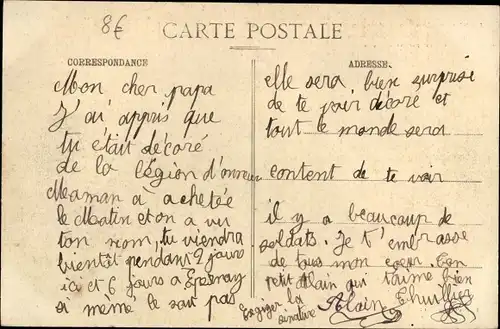 8€
CARTE POSTALE
CORRESPONDANCE
Mon cher papa
J'ai appris que
tu était décoré
de la légion d'onneur
Maman à achetée
le Matin et on a vu
ton nom, tu viendra
bientôt pendant 2 jours
ici et 6 jours a Epernay
si même le sait pas
ADRESSE
elle sera bien surprise
de te voir décoré et
tout le monde sera
content de te voir
il y a beaucoup de
soldats. Je t'embrasse
de tous mon coeur. Ton
petit Alain qui t'aime bien
Alain Thuillier
la